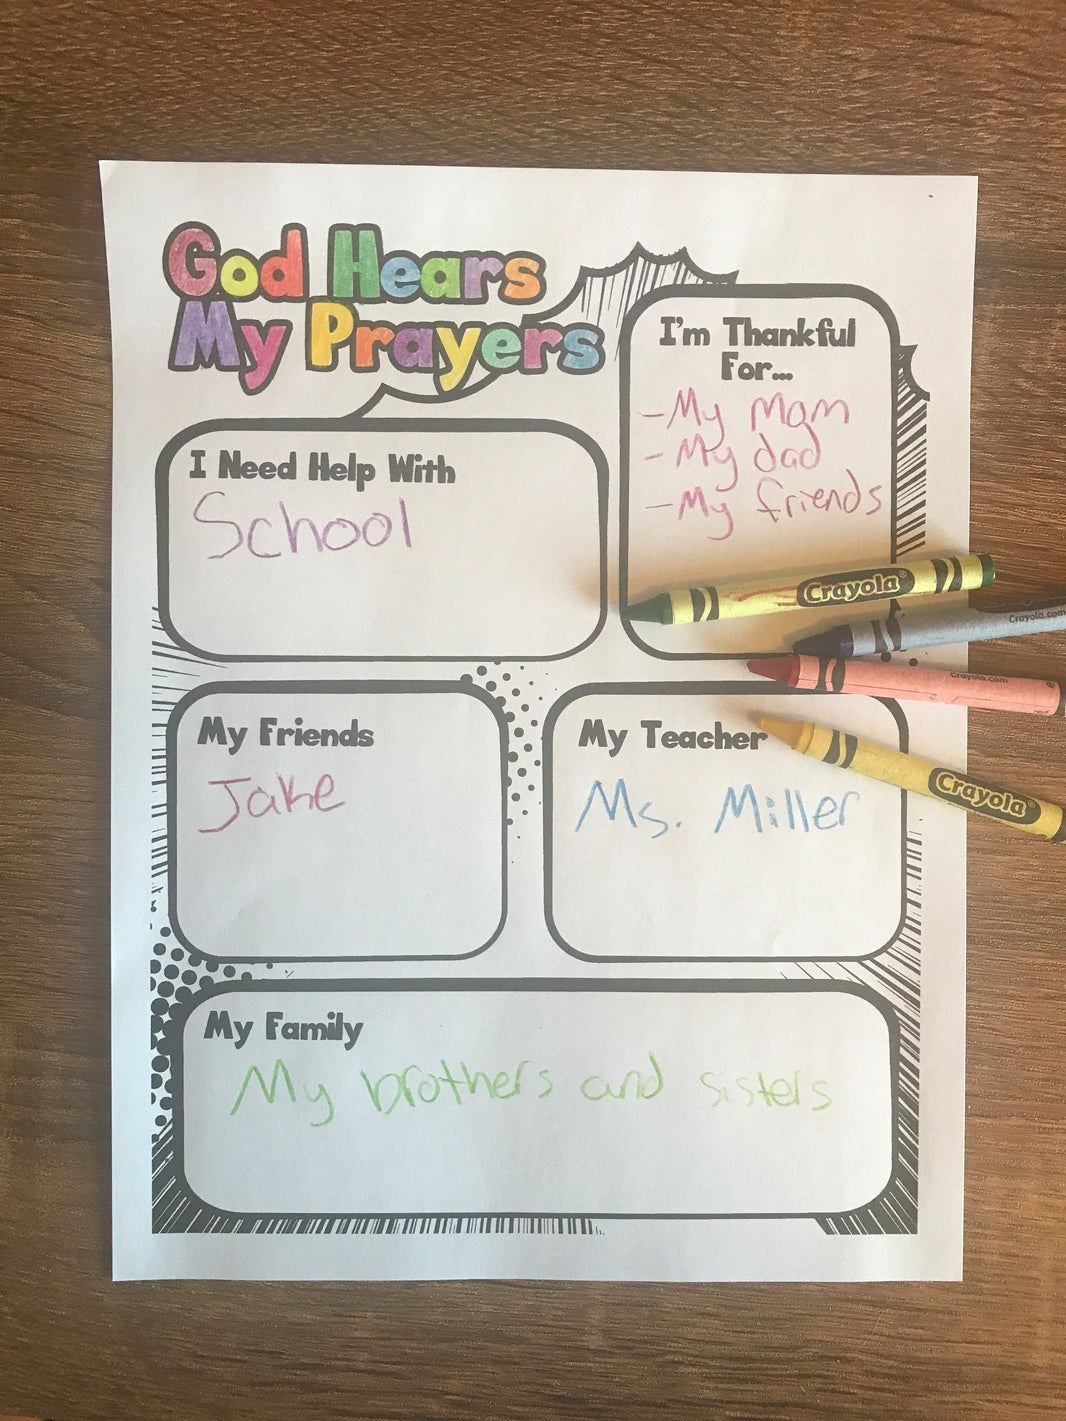 God Hears
My Prayers
I'm Thankful
For...
-My mom
-My dad
-My friends
I Need Help With
School
Crayola®
Crayola.com
Crayola.com
Crayola
My Friends
Jake
My Teacher
Ms. Miller
My Family
My brothers and sisters